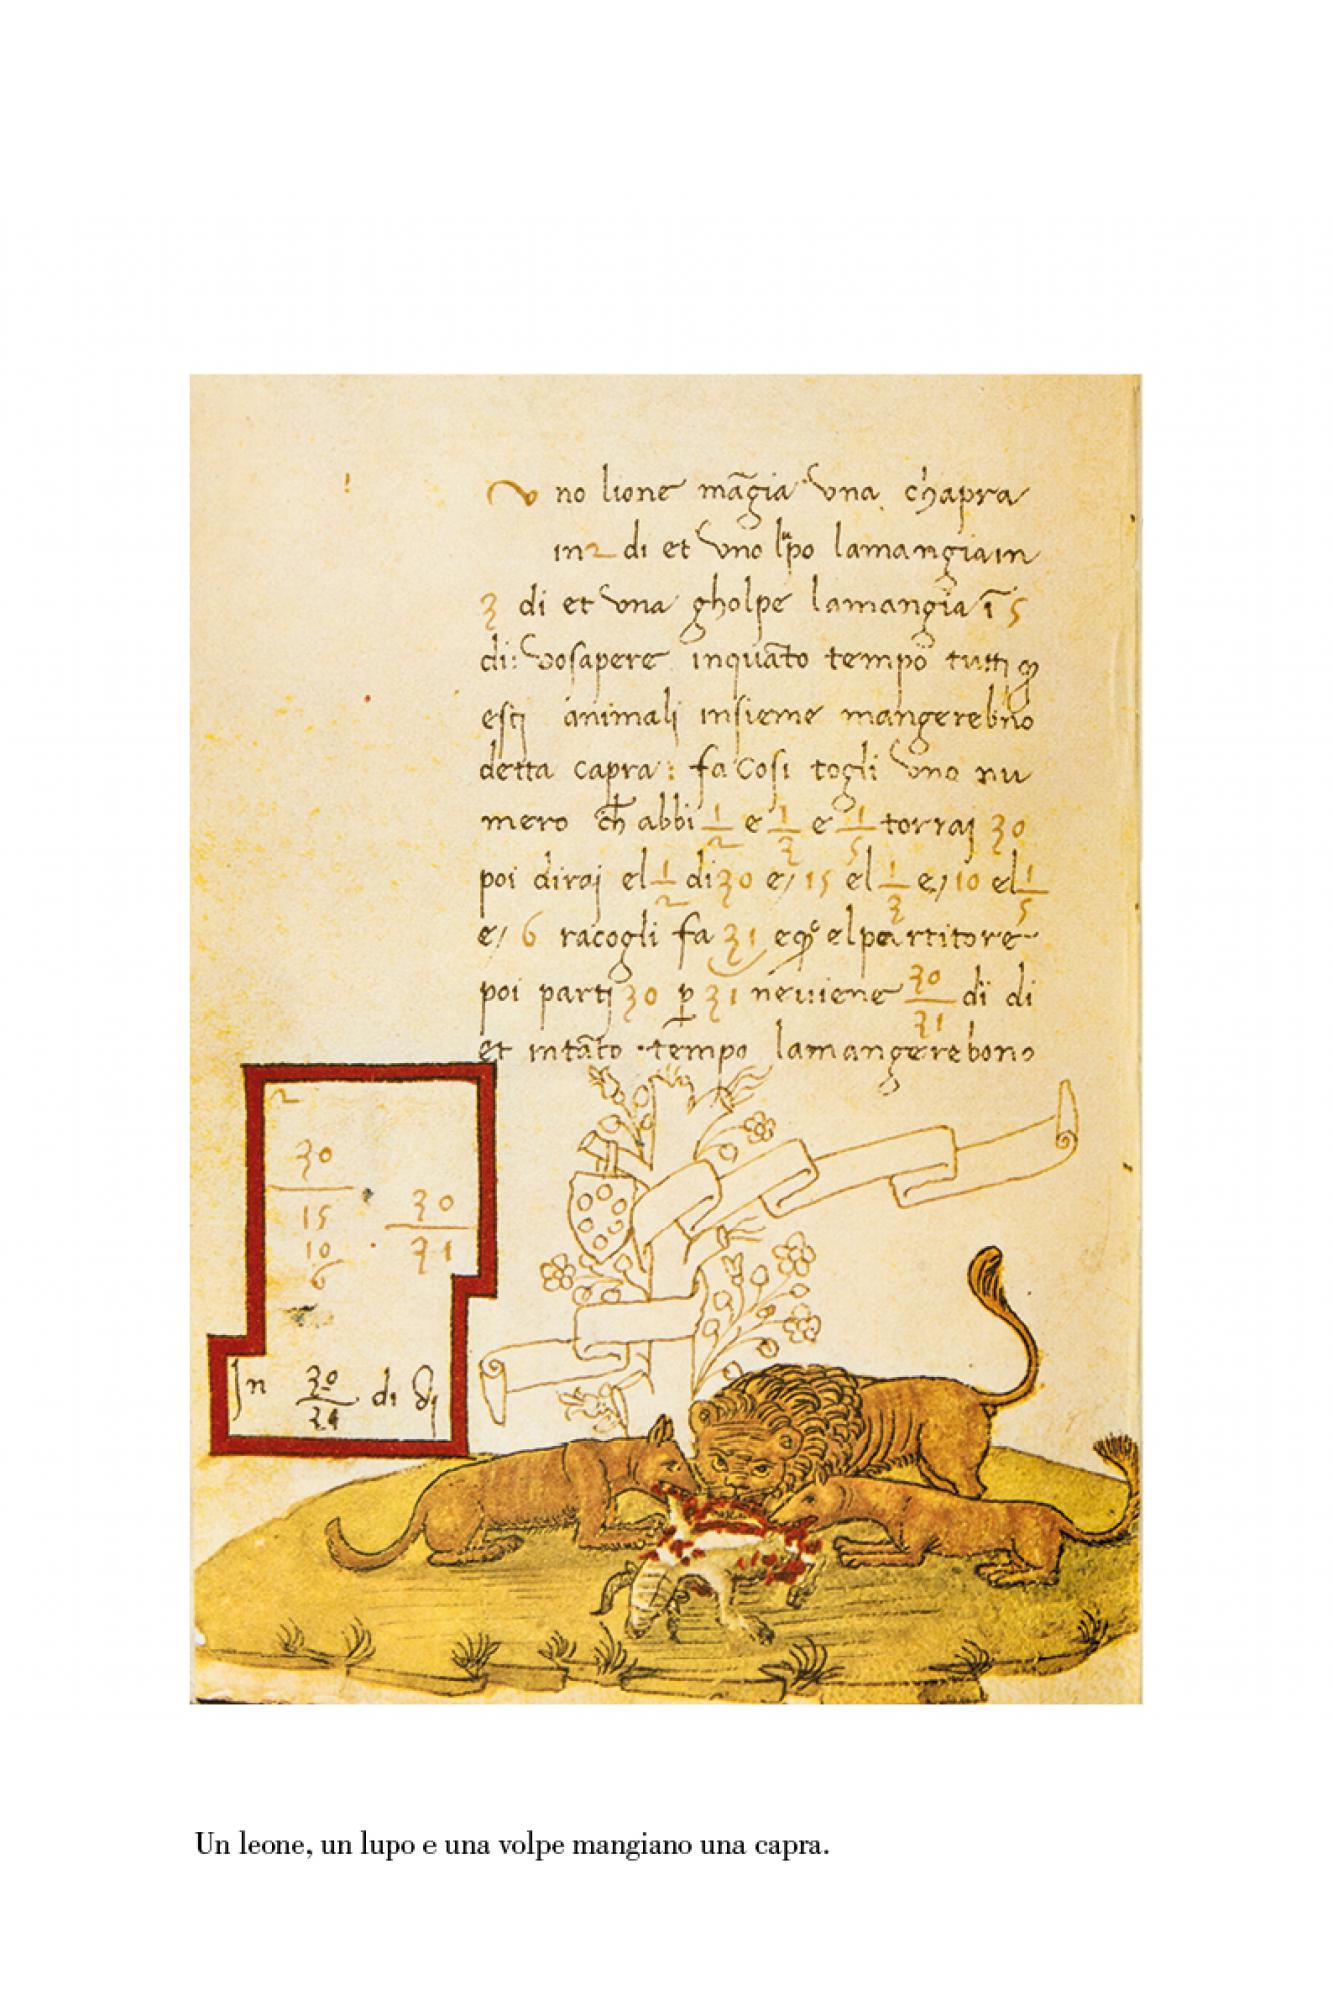 Vno lione mãgia vna chapra
in 2 di et vno lpo lamangiain
3 di et vna gholpe lamangia ĩ 5
di: vosapere inquãto tempo tutti q̃
esti animali insieme mangerebño
detta capra: fa Cosi togli vno nu
mero ch̃ abbi 1/2 e 1/3 e 1/5 torrai 30
poi dirai el 1/2 di 30 e/ 15 el 1/3 e/ 10 el 1/5
e/ 6 racogli fa 31 e q° elpartitore
poi parti 30 p 31 neuiene 30/31 di di
et intãto tempo lamangerebono
2
30
15
10
6
30/31
In 30/31 di di
Un leone, un lupo e una volpe mangiano una capra.